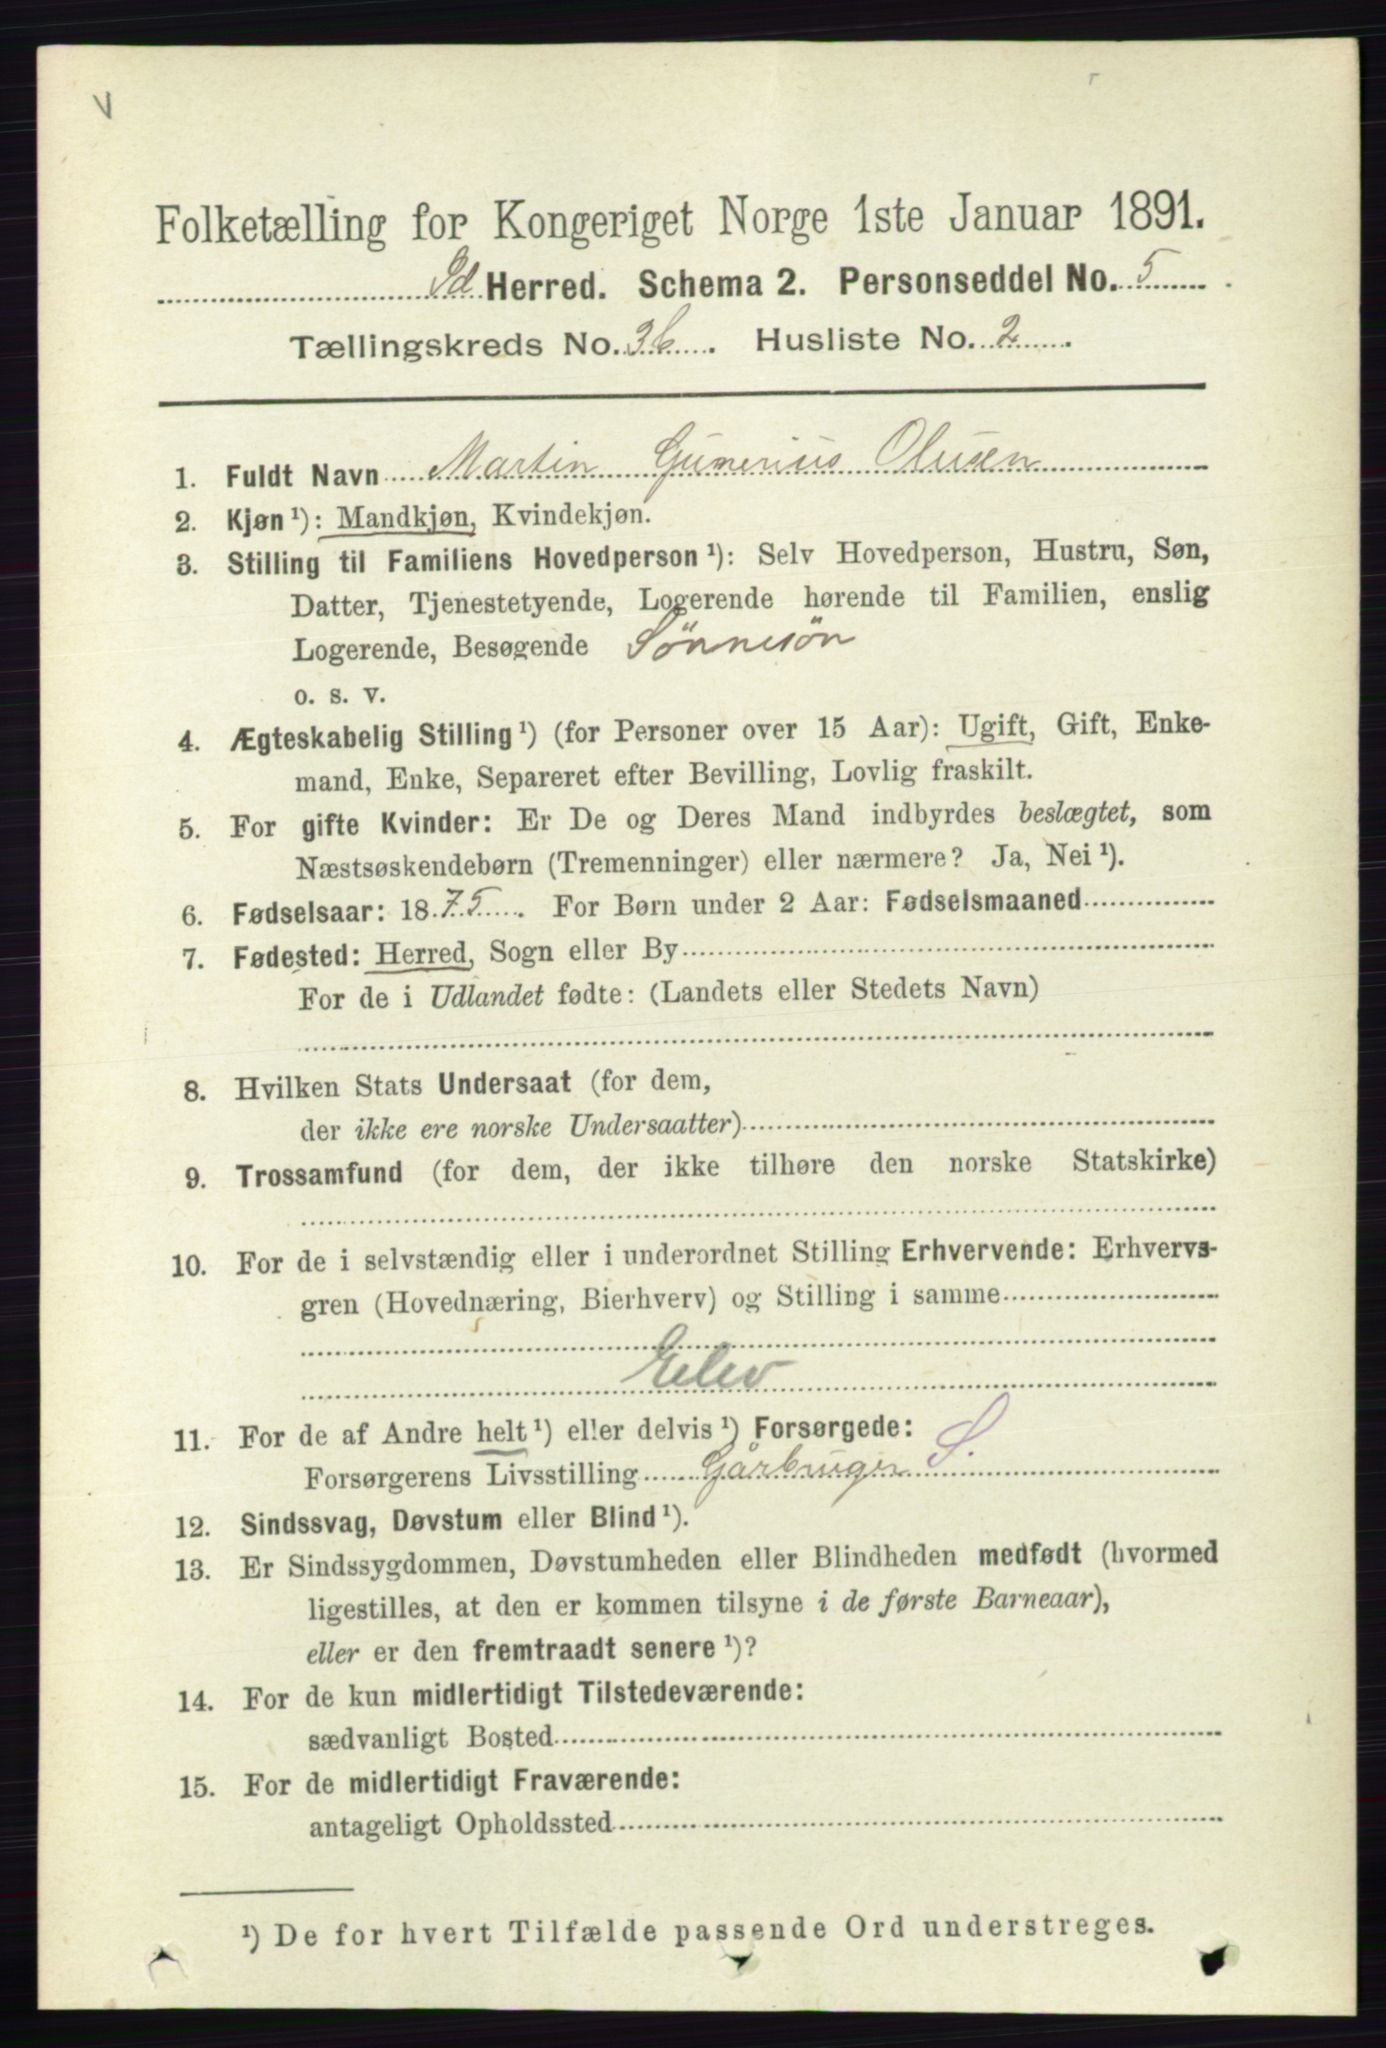 V
Folketælling for Kongeriget Norge 1ste Januar 1891.
Id Herred. Schema 2. Personseddel No. 5
Tællingskreds No. 3b. Husliste No. 2
1. Fuldt Navn Martin Gunerius Olusen
2. Kjøn ¹): Mandkjøn, Kvindekjøn.
3. Stilling til Familiens Hovedperson ¹): Selv Hovedperson, Hustru, Søn,
Datter, Tjenestetyende, Logerende hørende til Familien, enslig
Logerende, Besøgende Sönnesön
o. s. v.
4. Ægteskabelig Stilling ¹) (for Personer over 15 Aar): Ugift, Gift, Enke-
mand, Enke, Separeret efter Bevilling, Lovlig fraskilt.
5. For gifte Kvinder: Er De og Deres Mand indbyrdes beslægtet, som
Næstsøskendebørn (Tremenninger) eller nærmere? Ja, Nei ¹).
6. Fødselsaar: 1875. For Børn under 2 Aar: Fødselsmaaned
7. Fødested: Herred, Sogn eller By
For de i Udlandet fødte: (Landets eller Stedets Navn)
8. Hvilken Stats Undersaat (for dem,
der ikke ere norske Undersaatter)
9. Trossamfund (for dem, der ikke tilhøre den norske Statskirke)
10. For de i selvstændig eller i underordnet Stilling Erhvervende: Erhvervs-
gren (Hovednæring, Bierhverv) og Stilling i samme
Elev
11. For de af Andre helt ¹) eller delvis ¹) Forsørgede:
Forsørgerens Livsstilling Gårbruger S.
12. Sindssvag, Døvstum eller Blind ¹).
13. Er Sindssygdommen, Døvstumheden eller Blindheden medfødt (hvormed
ligestilles, at den er kommen tilsyne i de første Barneaar),
eller er den fremtraadt senere ¹)?
14. For de kun midlertidigt Tilstedeværende:
sædvanligt Bosted
15. For de midlertidigt Fraværende:
antageligt Opholdssted
¹) De for hvert Tilfælde passende Ord understreges.